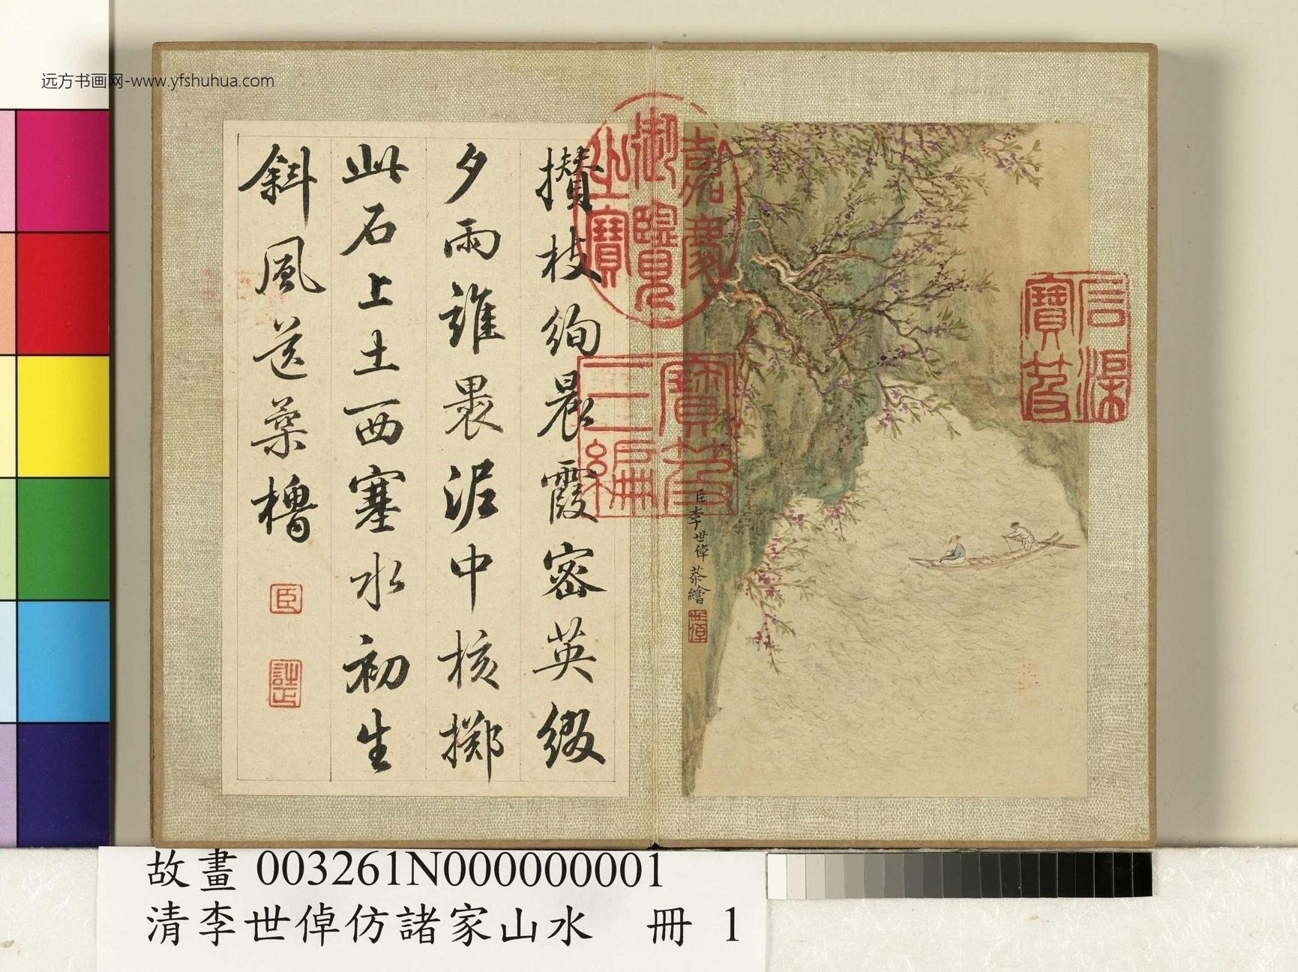 远方书画网-www.yfshuhua.com
攢枝絢晨霞密英綴
夕雨誰畏泥中核擲
此石上土西塞水初生
斜風送菜櫓
臣
嘉慶御覽之寶
寶笈三編
石渠寶笈
臣李世倬恭繪
世倬
故畫 003261N000000001
清李世倬仿諸家山水 冊 1